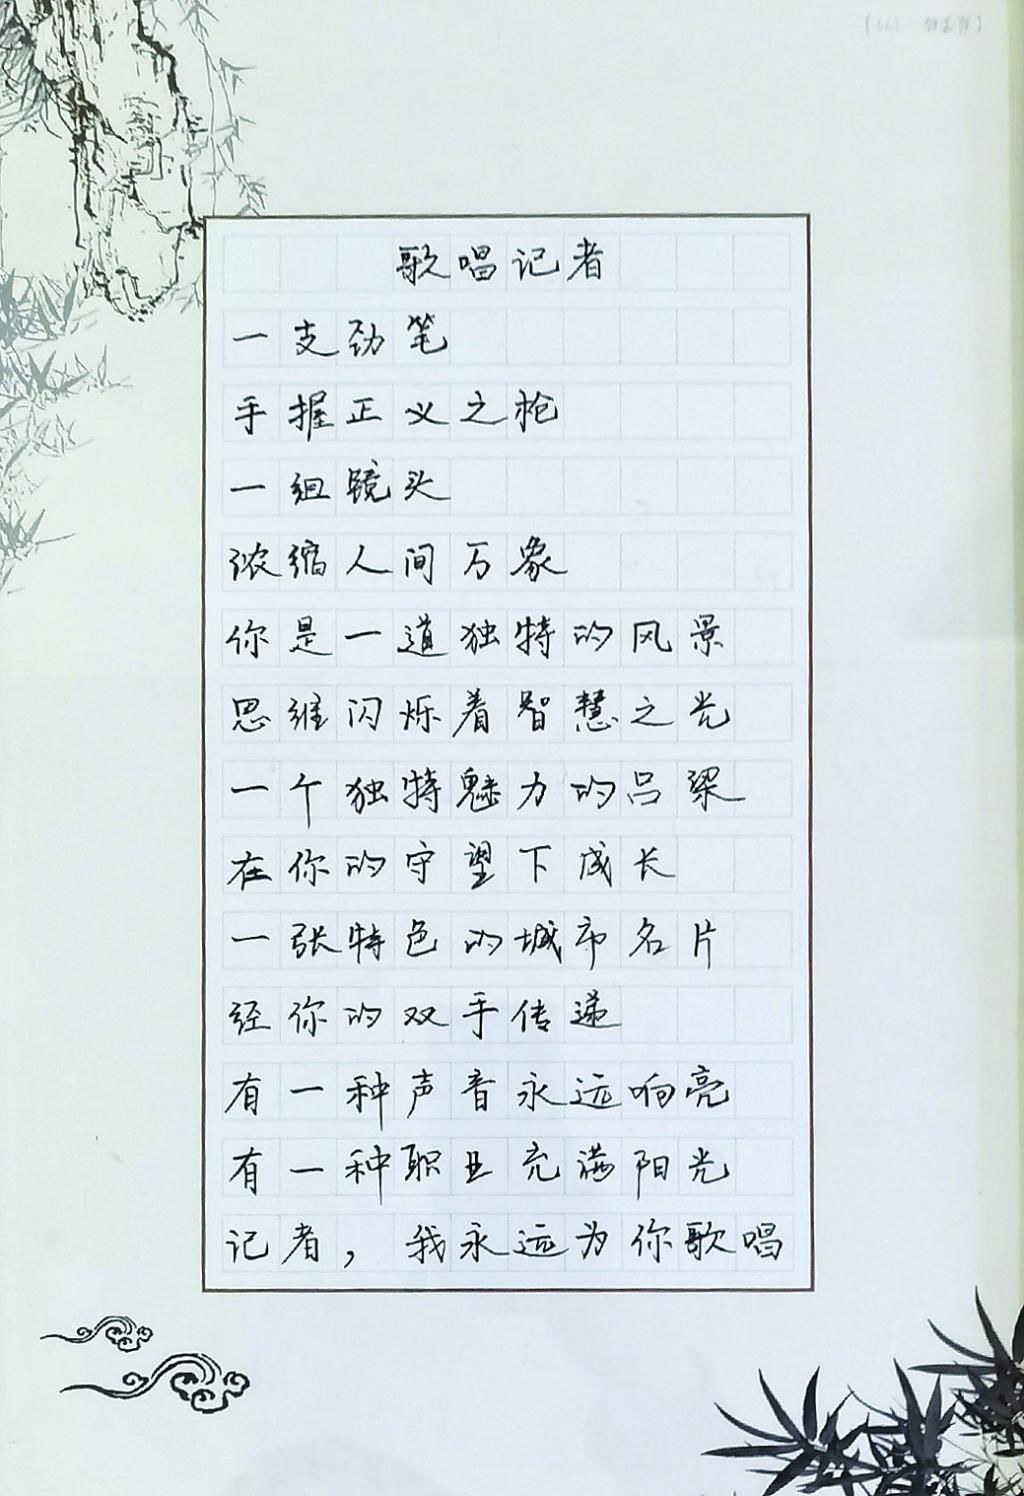 歌唱记者
一支劲笔
手握正义之枪
一组镜头
浓缩人间万象
你是一道独特的风景
思维闪烁着智慧之光
一个独特魅力的吕梁
在你的守望下成长
一张特色的城市名片
经你的双手传递
有一种声音永远响亮
有一种职业充满阳光
记者，我永远为你歌唱